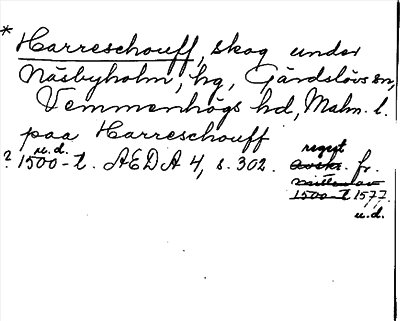 * Harreschouff, skog under
Näsbyholm, hg, Gärdslövs sn,
Vemmenhögs hd, Malm. l.
paa Harreschouff
u.d.
? 1500-t. AEDA 4, s. 302. regist fr.
1500-t 1577.
u.d.